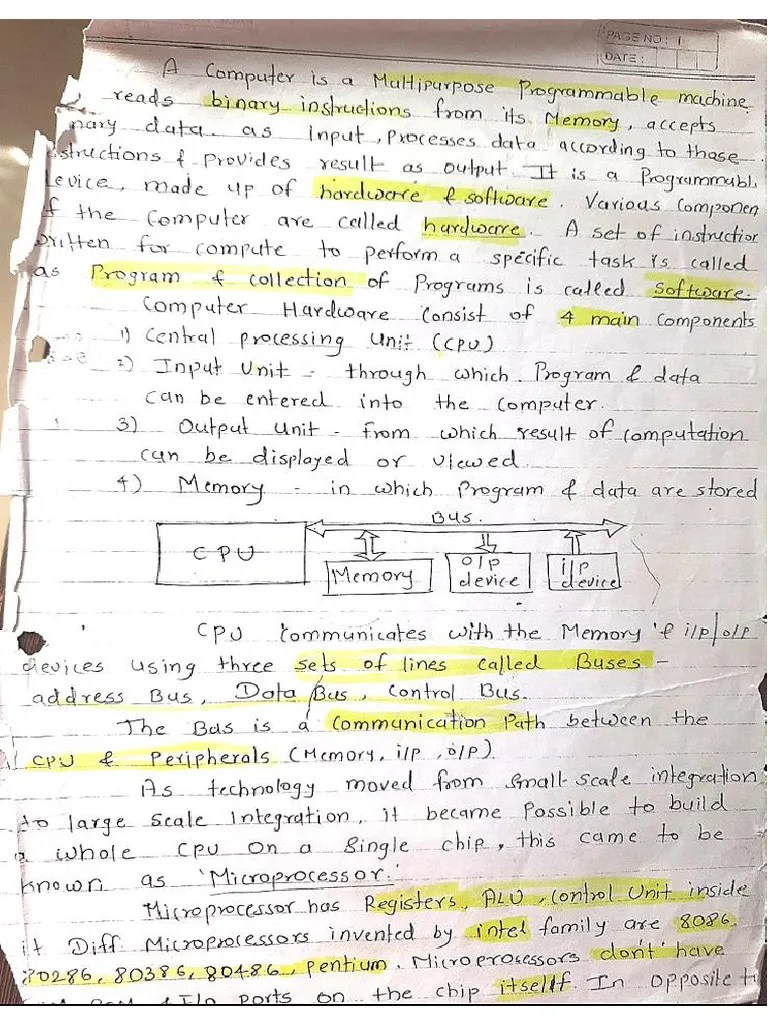 PAGE NO: 1
DATE:
A Computer is a Multipurpose Programmable machine
reads binary instructions from its Memory, accepts
nary data as input, processes data according to those
structions & provides result as output. It is a Programmabl
evice, made up of hardware & software. Various Componen
f the Computer are called hardware. A set of instruction
written for compute to perform a specific task is called
as Program & collection of Programs is called Software.
Computer Hardware Consist of 4 main Components
1) Central processing Unit (CPU)
2) Input Unit - through which Program & data
can be entered into the Computer.
3) Output Unit - from which result of computation
can be displayed or viewed.
4) Memory - in which Program & data are stored
BUS.
CPU
Memory
O/P device
i/p device
CPU Communicates with the Memory & i/p/o/p
devices using three sets of lines called Buses -
address Bus, Data Bus, Control Bus.
The Bus is a Communication Path between the
CPU & Peripherals (Memory, i/p, o/p)
As technology moved from small scale integration
to large scale Integration, it became possible to build
a whole CPU on a single chip, this came to be
known as 'Microprocessor.'
Microprocessor has Registers, ALU, Control Unit inside
it Diff. Microprocessors invented by intel family are 8086,
80286, 80386, 80486, Pentium. Microprocessors don't have
ROM & I/O ports on the chip itsellf. In opposite t